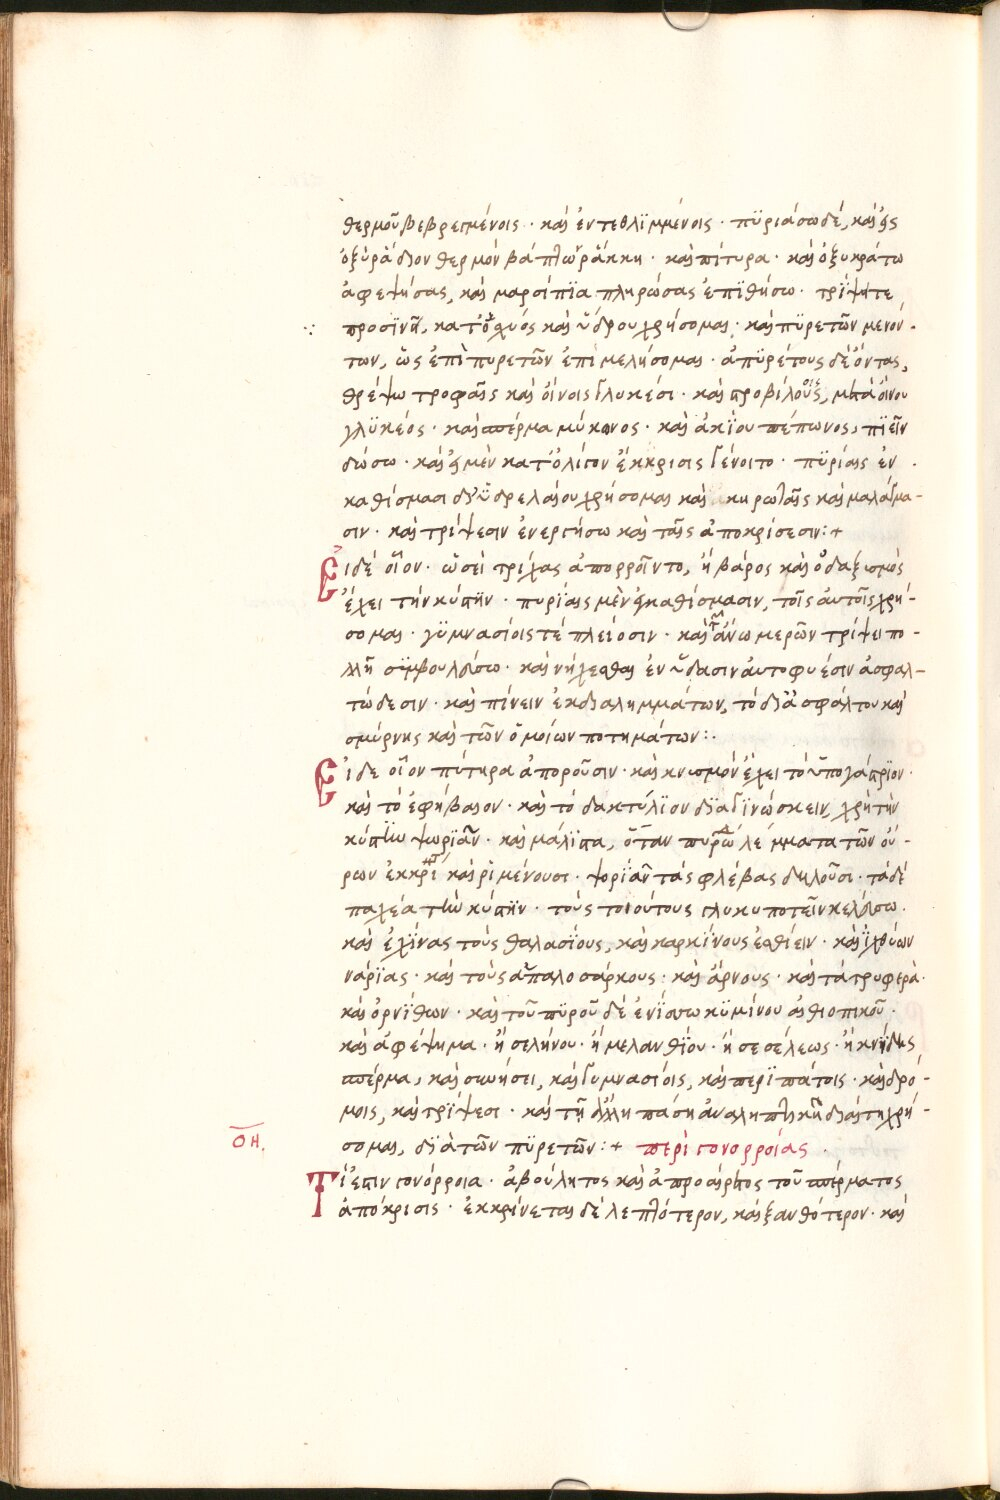 θερμοῦ βεβρεγμένοις · καὶ ἐντεθλϊμμένοις · πϋριάσω δέ, καὶ εἰς
ὀξύρά διον θερμόν βάπτω ῥάκκη · καὶ πίτυρα · καὶ ὀξυκράτω
ἀφεψήσας, καὶ μαρσίπϊα πληρώσας ἐπϊθήσω · τρΐψητε
καὶ πϋρετῶν μενόν -
των, ὡς ἐπὶ πυρετῶν ἐπὶ μελήσομαι · ἀπϋρέτους δὲ ὄντας,
θρέψω τροφαῖς καὶ οἴνοις γλυκέσι · καὶ προβίλους, μετὰ οἴνου
γλϋκέος · καὶ σπέρμα μύκωνος · καὶ σικϊου πέπωνος, πϊεῖν
δώσω · καὶ εἰ μὲν κατ' ὀλίγον ἔκκρισις γένοιτο · πϋρίαις ἐν
καθίσμασι δι' ὑδρελαίου χρήσομαι καὶ κηρωταῖς καὶ μαλάγμα -
σιν · καὶ τρίψεσιν ἐνεργήσω καὶ ταῖς ἀποκρίσεσιν :+
Εἰ δέ οἷον · ὡσεὶ τρίχας ἀπορροῖντο, ἢ βάρος καὶ ὀδαξισμὸς
ἔχει τὴν κύστϊν · πυρίαις μὲν ἐγκαθίσμασιν, τοῖς αὐτοῖς χρή -
σομαι · γϋμνασίοις τέ πλείοσιν · καὶ τῶν ἄνω μερῶν τρίψει πο -
λλῆ σϋμβουλεύσω · καὶ νήχεσθαι ἐν ὕδασιν αὐτοφυέσιν ἀσφαλ -
τώδεσιν · καὶ πίνειν ἐκ διαλημμάτων, τὸ διὰ ἀσφάλτου καὶ
σμύρνης καὶ τῶν ὁμοίων ποτημάτων :·
Εἰ δε οἷον πύτηρα ἀποροῦσιν · καὶ κνισμόν ἔχει τὸ ὑπογάστρϊον ·
καὶ τὸ ἐφήβαιον · καὶ τὸ δακτύλϊον δϊαγϊνώσκειν, χρὴ τὴν
κύστιν ψωρϊᾶν · καὶ μάλϊστα, ὅταν πυρώδη λέμματα τῶν οὔ -
ρων ἐκκριθῆ καὶ ῥϊμένουσι · ψορϊᾶν τάς φλέβας δηλοῦσι · τὰ δέ
παχέα τὴν κύστϊν · τοὺς τοιούτους γλυκυποτεῖν κελεύσω ·
καὶ ἐχϊνας τοὺς θαλασίους, καὶ καρκϊνους ἐσθίειν · καὶ ϊχθύων
νάρϊας · καὶ τοὺς ἁπαλοσάρκους · καὶ ἄρνους · καὶ τὰ τρυφερὰ ·
καὶ ὀρνϊθων · καὶ τοῦ πϋροῦ δέ ἐνΐστω κϋμίνου αἰθιοπικοῦ ·
καὶ ἀφέψημα · ἢ σελήνου · ἢ μελανθϊου · ἢ σεσέλεως · ἢ κνήδης
σπέρμα, καὶ σιωήσει, καὶ γυμνασίοις, καὶ περϊπάτοις · καὶ δρό -
μοις, καὶ τρϊψεσι · καὶ τῇ ἄλλη πάση ἀναληπτικῆ διαίτη χρή -
σομαι, δϊὰ τῶν πϋρετῶν :+ περὶ γονορροίας ·
ΟΗ.
Τί ἐστιν γονόρροια · ἀβούλητος καὶ ἀπροαίρετος τοῦ σπέρματος
ἀπόκρισις · ἐκκρίνεται δὲ λεπτότερον, καὶ ξανθότερον · καὶ